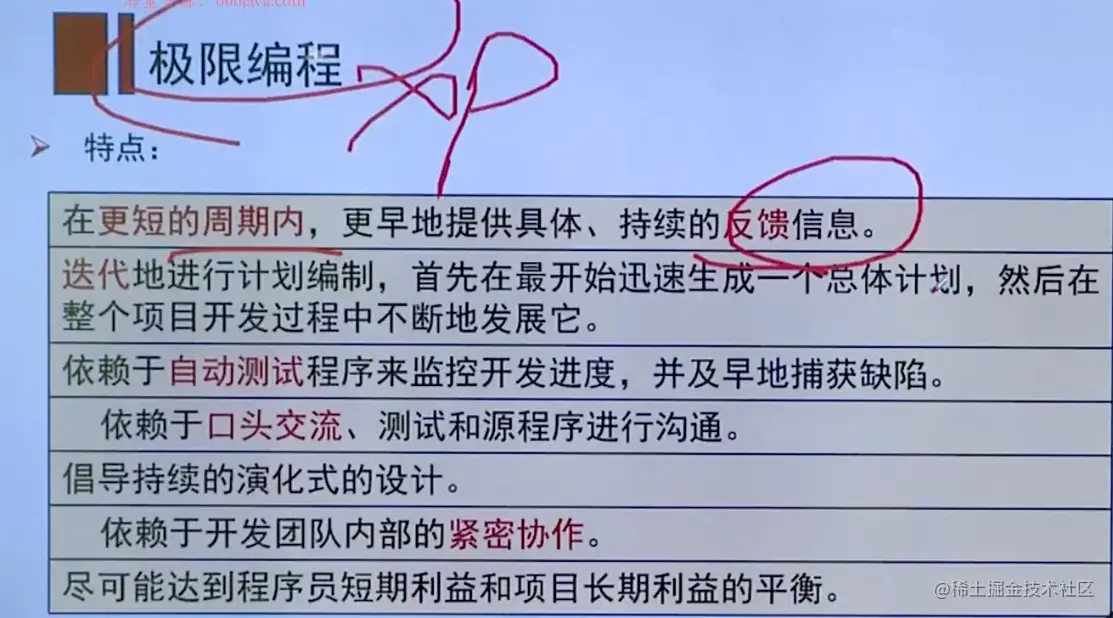 极限编程
XP
特点：
在更短的周期内，更早地提供具体、持续的反馈信息。
迭代地进行计划编制，首先在最开始迅速生成一个总体计划，然后在
整个项目开发过程中不断地发展它。
依赖于自动测试程序来监控开发进度，并及早地捕获缺陷。
依赖于口头交流、测试和源程序进行沟通。
倡导持续的演化式的设计。
依赖于开发团队内部的紧密协作。
尽可能达到程序员短期利益和项目长期利益的平衡。
@稀土掘金技术社区